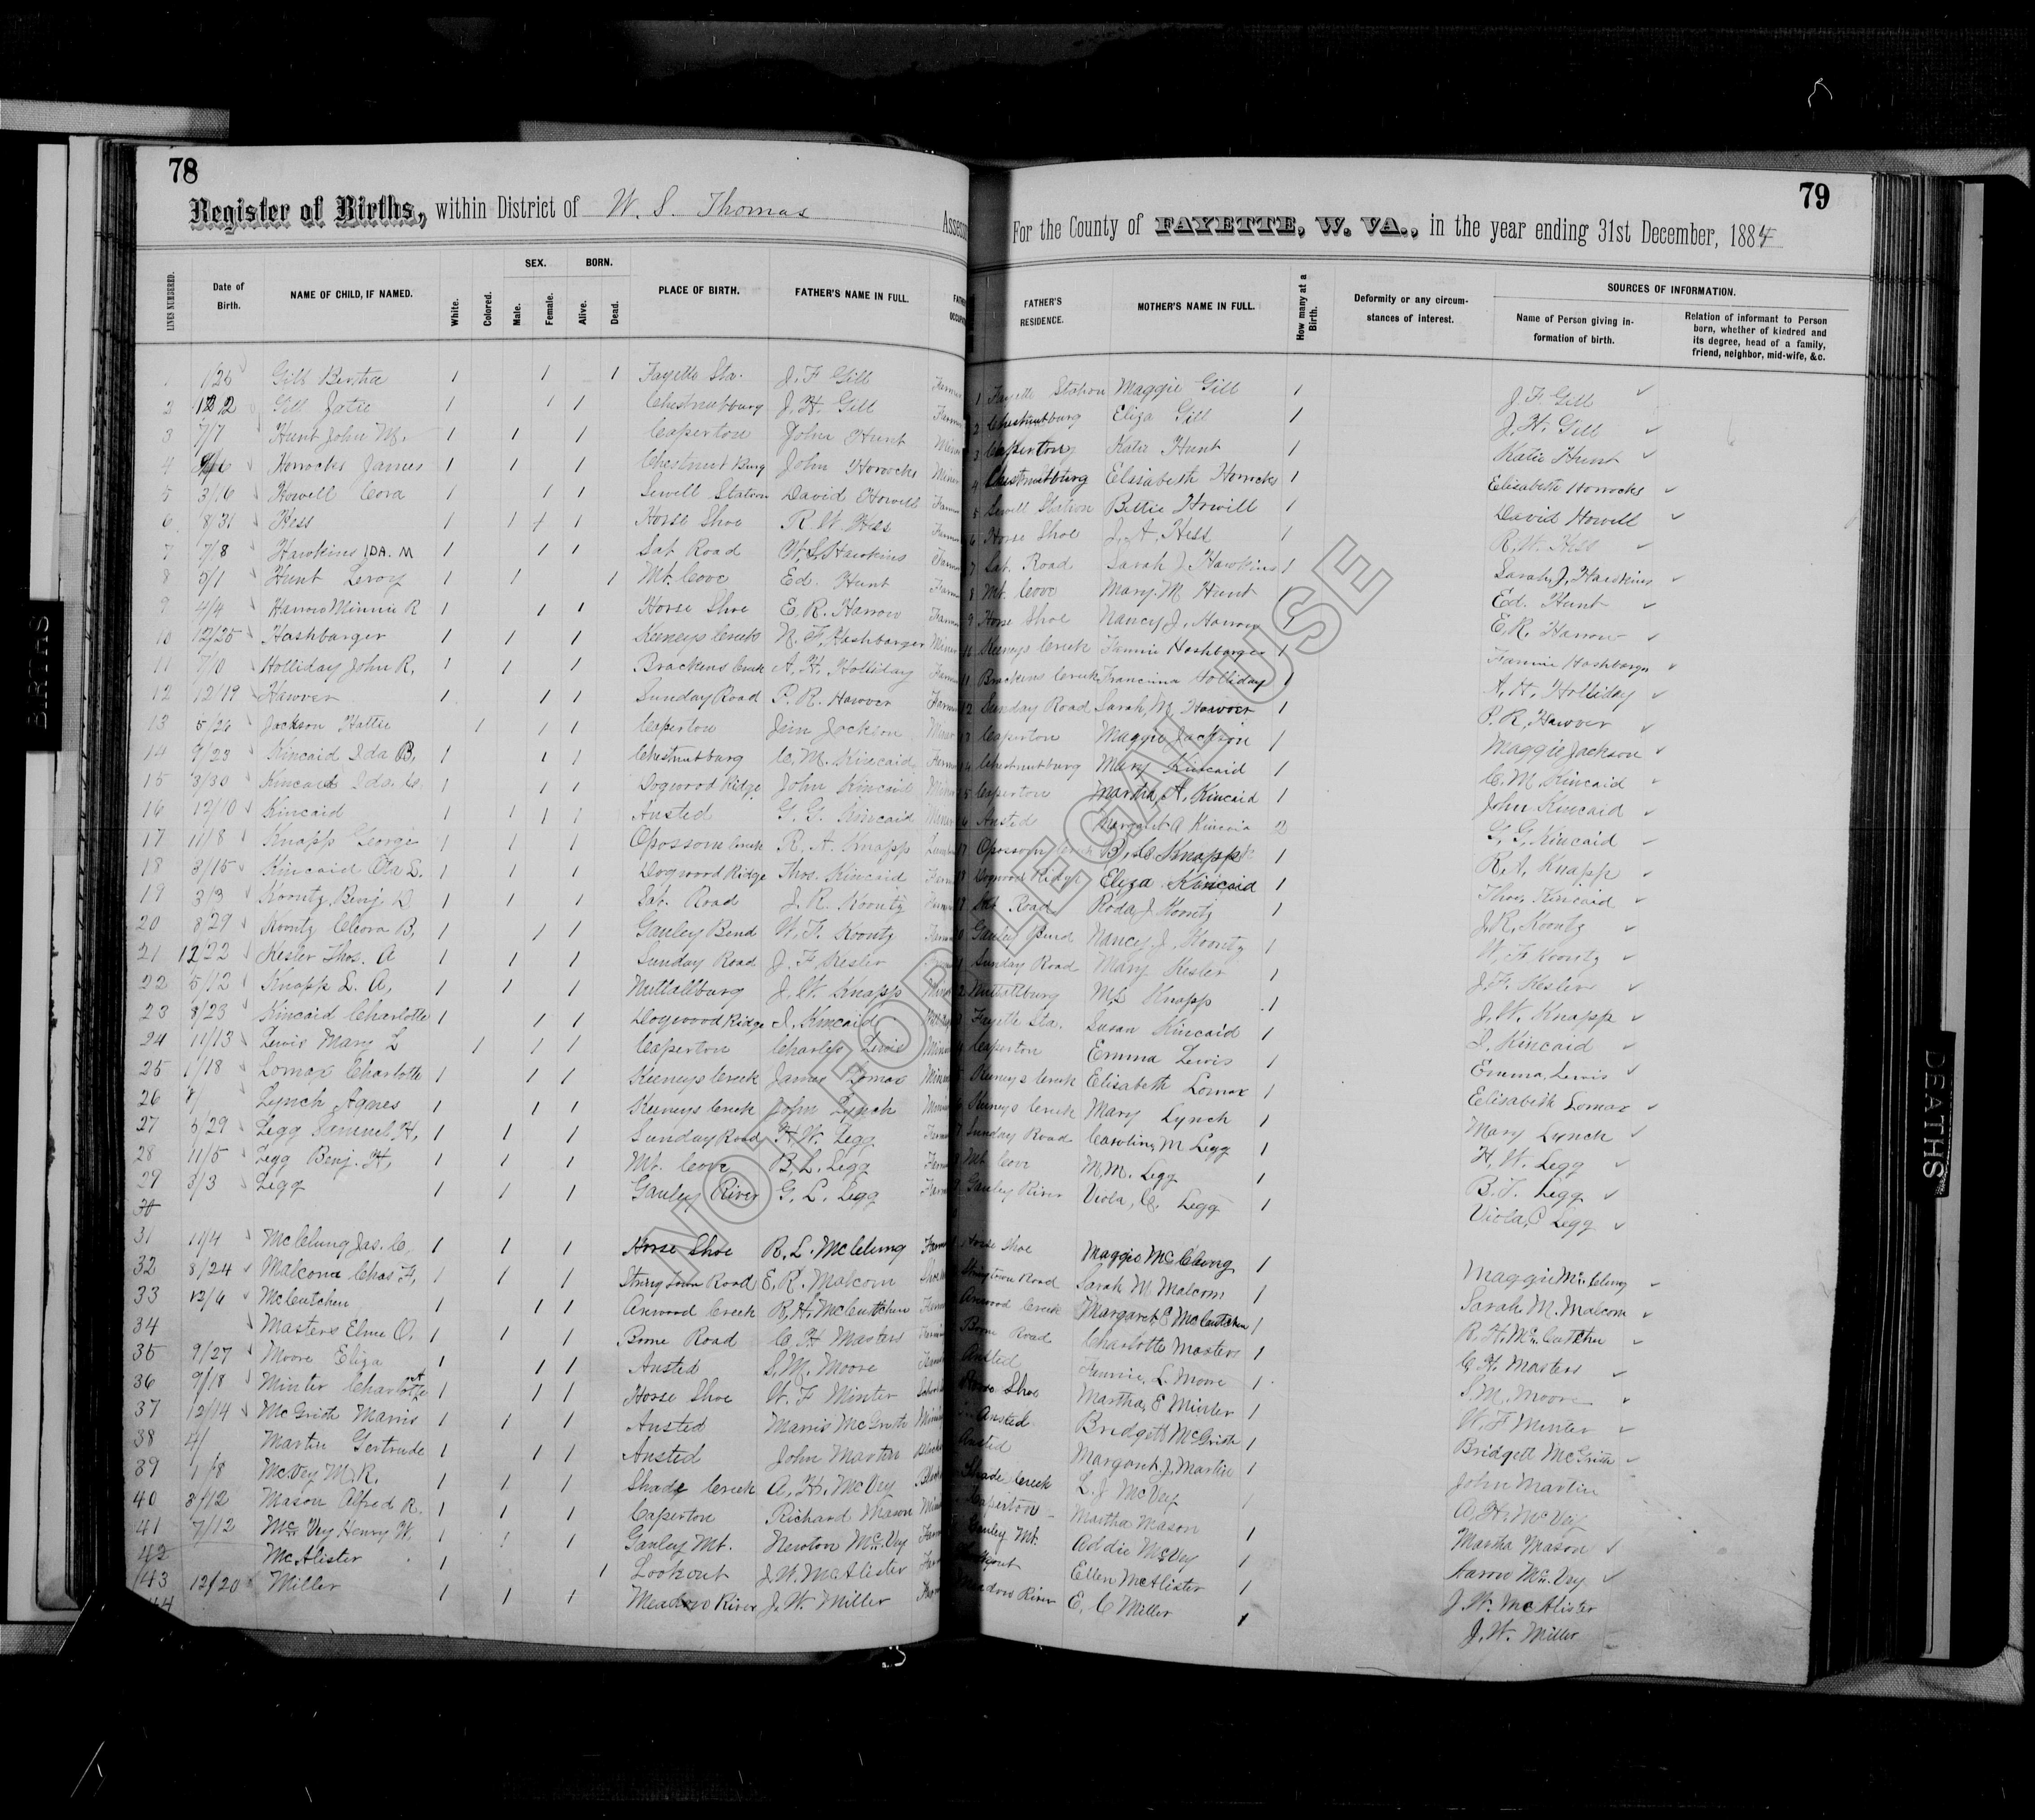 78
Register of Births, within District of W. S. Thomas
Assessor
LINES NUMBERED. Date of Birth. NAME OF CHILD, IF NAMED. White. Colored. SEX. Male. Female. BORN. Alive. Dead. PLACE OF BIRTH. FATHER'S NAME IN FULL.
1 1/26 Gill Bertha 1 1 1 Fayette Sta. J. F Gill
2 Gill Zatie 1 1 1 Chestnutburg J. H. Gill
3 7/7 Hunt John M. 1 1 1 Caperton John Hunt
4 Horrocks James 1 1 1 Chestnut Burg John Horrocks
5 3/16 Howell Cora 1 1 1 Sewell Station David Howell
6 8/31 Hess 1 1 1 1 Horse Shoe R. W. Hess
7 7/8 Hawkins IDA. M 1 1 1 Sat. Road W. S. Hawkins
8 5/1 Hunt Leroy 1 1 1 Mt. Cove Ed. Hunt
9 4/4 Harrow Minnie R 1 1 1 Horse Shoe E. R. Harrow
10 12/25 Hashbarger 1 1 1 Keeneys Creek N. F. Hashbarger
11 7/0 Holliday John R. 1 1 1 Brackens Creek A. H. Holliday
12 12/19 Hawver 1 1 1 Sunday Road P. R. Hawver
13 5/26 Jackson Hattie 1 1 1 Caperton Jim Jackson
14 9/23 Kincaid Ida B. 1 1 1 Chestnutburg C. M. Kincaid
15 3/30 Kincaid Ida. 1 1 1 Dogwood Ridge John Kincaid
16 12/10 Kincaid 1 1 1 1 Ansted G. G. Kincaid
17 11/8 Knapp George 1 1 1 Opossom Creek R. A. Knapp
18 3/15 Kincaid Ota L. 1 1 1 Dogwood Ridge Thos. Kincaid
19 3/3 Koontz Benj. D 1 1 1 Sat. Road J. R. Koontz
20 8/29 Koontz Cleora B. 1 1 1 Gauley Bend W. F. Koontz
21 12/22 Kesler Thos. A 1 1 1 Sunday Road J. F. Kesler
22 5/12 Knapp L. A. 1 1 1 Nuttallburg J. W. Knapp
23 8/23 Kincaid Charlotte 1 1 1 Dogwood Ridge I. Kincaid
24 11/13 Lewis Mary L 1 1 1 Caperton Charles Lewis
25 1/18 Lomax Charlotte 1 1 1 Keeneys Creek James Lomax
26 8/ Lynch Agnes 1 1 1 Keeneys Creek John Lynch
27 5/29 Legg Samuel H. 1 1 1 Sunday Road H. W. Legg
28 11/5 Legg Benj. H. 1 1 1 Mt. Cove B. L. Legg
29 3/3 Legg 1 1 1 Gauley River G. L. Legg
30
31 11/4 McClung Jas. C. 1 1 1 Horse Shoe R. L. McClung
32 8/24 Malcom Chas F. 1 1 1 Stringtown Road E. R. Malcom
33 12/6 McCutchen 1 1 1 Arwood Creek R. H. McCutchen
34 Masters Elme O. 1 1 1 Boone Road C. H Masters
35 9/27 Moore Eliza 1 1 1 Ansted S. M. Moore
36 9/18 Minter Charlotte 1 1 1 Horse Shoe W. F Minter
37 12/14 McGrith Marris 1 1 1 Ansted Marris McGrith
38 4/ Martin Gertrude 1 1 1 Ansted John Martin
39 1/8 McVey M. R. 1 1 1 Shade Creek A. H. McVey
40 3/12 Mason Alfred R. 1 1 1 Caperton Richard Mason
41 7/12 McVey Henry W. 1 1 1 Gauley Mt. Newton McVey
42 McAlister 1 1 Lookout J. W. McAlister
43 12/20 Miller 1 1 1 Meadow River J. W. Miller
44
79
For the County of FAYETTE, W. VA., in the year ending 31st December, 1884
FATHER'S RESIDENCE. MOTHER'S NAME IN FULL. How many at a Birth. Deformity or any circumstances of interest. SOURCES OF INFORMATION. Name of Person giving information of birth. Relation of informant to Person born, whether of kindred and its degree, head of a family, friend, neighbor, mid-wife, &c.
1 Fayette Station Maggie Gill 1 J. F. Gill
2 Chestnutburg Eliza Gill 1 J. H. Gill
3 Caperton Katie Hunt 1 Katie Hunt
4 Chestnutburg Elisabeth Horrocks 1 Elisabeth Horrocks
5 Sewell Station Bettie Howill 1 David Howell
6 Horse Shoe J. A. Hess 1 R. W. Hess
7 Sat. Road Sarah J Hawkins 1 Sarah J. Hawkins
8 Mt. Cove Mary M Hunt 1 Ed. Hunt
9 Horse Shoe Nancy J. Harrow 1 E. R. Harrow
10 Keeneys Creek Fannie Hashbarger 1 Fannie Hashbarger
11 Brackens Creek Francina Holliday 1 A. H. Holliday
12 Sunday Road Sarah, M Hawver 1 P. R. Hawver
13 Caperton Maggie Jackson 1 Maggie Jackson
14 Chestnutburg Mary Kincaid 1 C. M Kincaid
15 Caperton Martha A. Kincaid 1 John Kincaid
16 Ansted Margaret A Kincaid 2 G. G. Kincaid
17 Opossom Creek Knapp 1 R. A. Knapp
18 Dogwood Ridge Eliza Kincaid 1 Thos. Kincaid
19 Sat Road Roda J Koontz 1 J. R. Koontz
20 Gauley Bend Nancy J. Koontz 1 W. F. Koontz
21 Sunday Road Mary Kesler 1 J. F. Kesler
22 Nuttallburg M. L Knapp 1 J. W. Knapp
23 Fayette Sta. Susan Kincaid 1 I. Kincaid
24 Caperton Emma Lewis 1 Emma Lewis
25 Keeneys Creek Elisabeth Lomax 1 Elisabeth Lomax
26 Keeneys Creek Mary Lynch 1 Mary Lynch
27 Sunday Road Caroline M Legg 1 H. W. Legg
28 Mt Cove M. M. Legg 1 B. T. Legg
29 Gauley River Viola, C. Legg 1 Viola, C Legg
Horse Shoe Maggie McClung 1 Maggie McClung
Stringtown Road Sarah M Malcom 1 Sarah. M. Malcom
Arwood Creek Margaret E McCutchen 1 R. H. McCutchen
Boone Road Charlotte Masters 1 C. H. Masters
Ansted Fannie, L. Moore 1 S. M. Moore
Horse Shoe Martha E Minter 1 W. F Minter
Ansted Bridgett McGrith 1 Bridgett McGrith
Ansted Margaret J. Martin 1 John Martin
Shade Creek L. J McVey 1 A. H. McVey
Caperton Martha Mason 1 Martha Mason
Gauley Mt. Addie McVey 1 Aaron McVey
Lookout Ellen McAlister 1 J. W. McAlister
Meadow River E. C Miller 1 J. W. Miller
NOT FOR LEGAL USE
BIRTHS
DEATHS